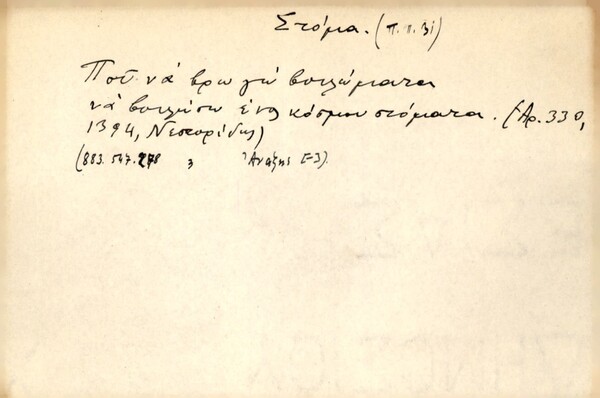 Στόμα. (Π.π. 31)
Ποῦ νά βρω γώ βουλώματα
νά βουλώσω ἑνοῦ κόσμου στόματα. (Ἀρ. 330,
1394, Νεστορίδης)
(883. 547. 278 , Ἀνάξης Γ-3).